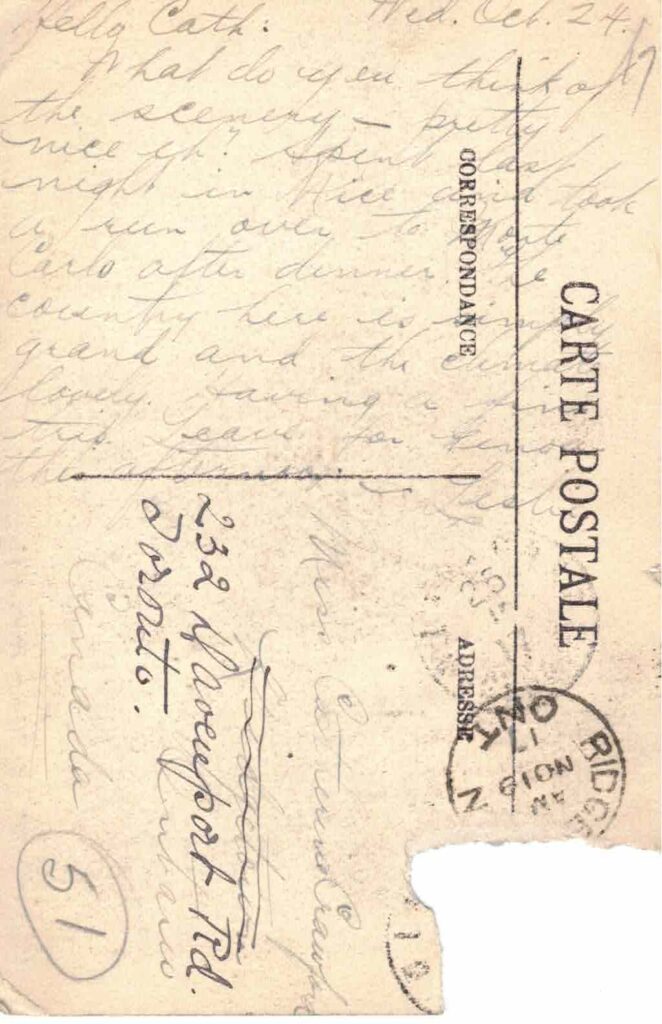 Hello Cath: Wed. Oct. 24.
What do you think of
the scenery – pretty
nice eh? Spent last
night in Nice and took
a run over to Monte
Carlo after dinner. The
country here is simply
grand and the climate
lovely. Having a fine
trip. Leave for
this afternoon
CARTE POSTALE
CORRESPONDANCE
ADRESSE
Miss Catherine
232 Davenport Rd.
Toronto.
Canada
51
RIDGE
ONT
AM
NO 19
17